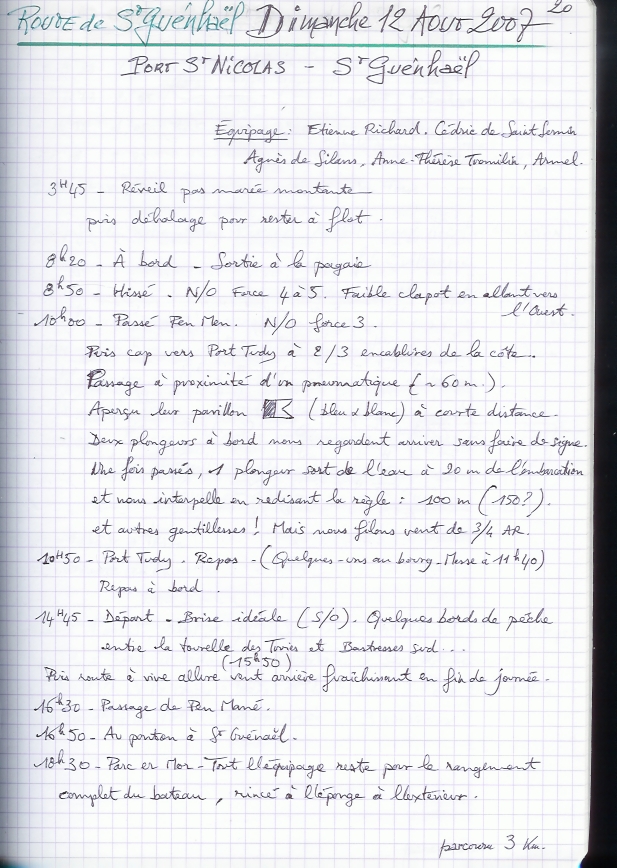 20
Route de St Guénhaël Dimanche 12 Aout 2007
Port St Nicolas - St Guénhaël
Equipage : Etienne Richard. Cédric de Saint Sernin
Agnès de Silans, Anne-Thérèse Tromilin, Armel.
3H45 - Réveil pas marée montante
puis déhalage pour rester à flot.
8h20 - À bord - Sortie à la pagaie
8h50 - Hissé. N/O Force 4 à 5. Faible clapot en allant vers
l'Ouest.
10h00 - Passé Pen Men. N/O force 3.
Puis cap vers Port Tudy à 2/3 encablures de la côte.
Passage à proximité d'un pneumatique (~ 60 m.).
Aperçu leur pavillon (bleu & blanc) à courte distance.
Deux plongeurs à bord nous regardent arriver sans faire de signe.
Une fois passés, 1 plongeur sort de l'eau à 20 m de l'embarcation
et nous interpelle en redisant la règle : 100 m (150?).
et autres gentillesses ! Mais nous filons vent de 3/4 AR.
10H50 - Port Tudy. Repos - (Quelques-uns au bourg - Messe à 11h40)
Repas à bord.
14H45 - Départ - Brise idéale (S/O). Quelques bords de pêche
entre la tourelle des Truies et Bastresses sud...
(15h50)
Puis route à vive allure vent arrière fraîchissant en fin de journée.
16H30 - Passage de Pen Mané.
16h50 - Au ponton à St Guénaël.
18h30 - Parc er Mor - Tout l'équipage reste pour le rangement
complet du bateau, rincé à l'éponge à l'extérieur.
parcouru 3 Km.